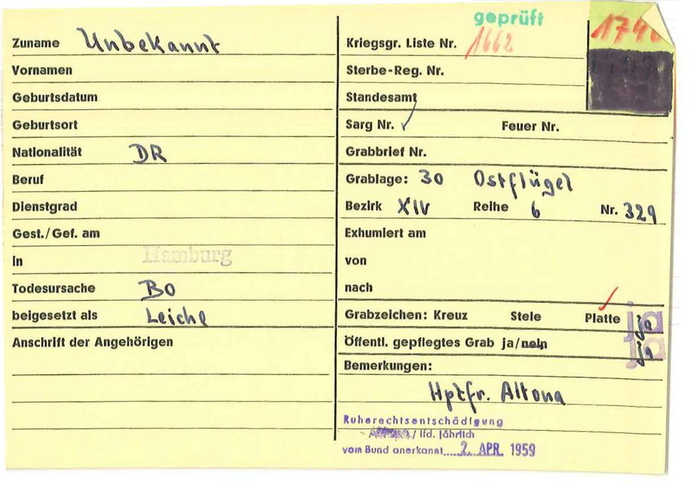 geprüft
Zuname Unbekannt
Vornamen
Geburtsdatum
Geburtsort
Nationalität DR
Beruf
Dienstgrad
Gest./Gef. am
in Hamburg
Todesursache BO
beigesetzt als Leiche
Anschrift der Angehörigen
Kriegsgr. Liste Nr. 1662
Sterbe-Reg. Nr.
Standesamt
Sarg Nr. Feuer Nr.
Grabbrief Nr.
Grablage: 30 Ostflügel
Bezirk XIV Reihe 6 Nr. 329
Exhumiert am
von
nach
Grabzeichen: Kreuz Stele Platte ja
Öffentl. gepflegtes Grab ja/nein ja
Bemerkungen:
Hptfr. Altona
Ruherechtsentschädigung
/ lfd. jährlich
vom Bund anerkannt 2. APR. 1959